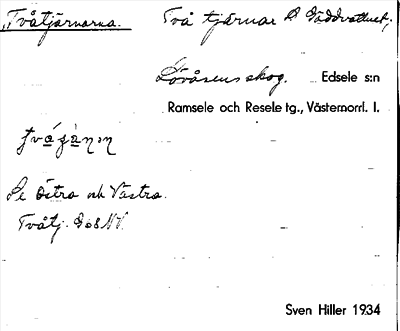 Tvåtjärnarna. Två tjärnar Gäddvattnet,
Lövåsens skog. Edsele s:n
Ramsele och Resele tg., Västernorrl. l.
Se Östra och Västra
Tvåtj. GSB NV.
Sven Hiller 1934